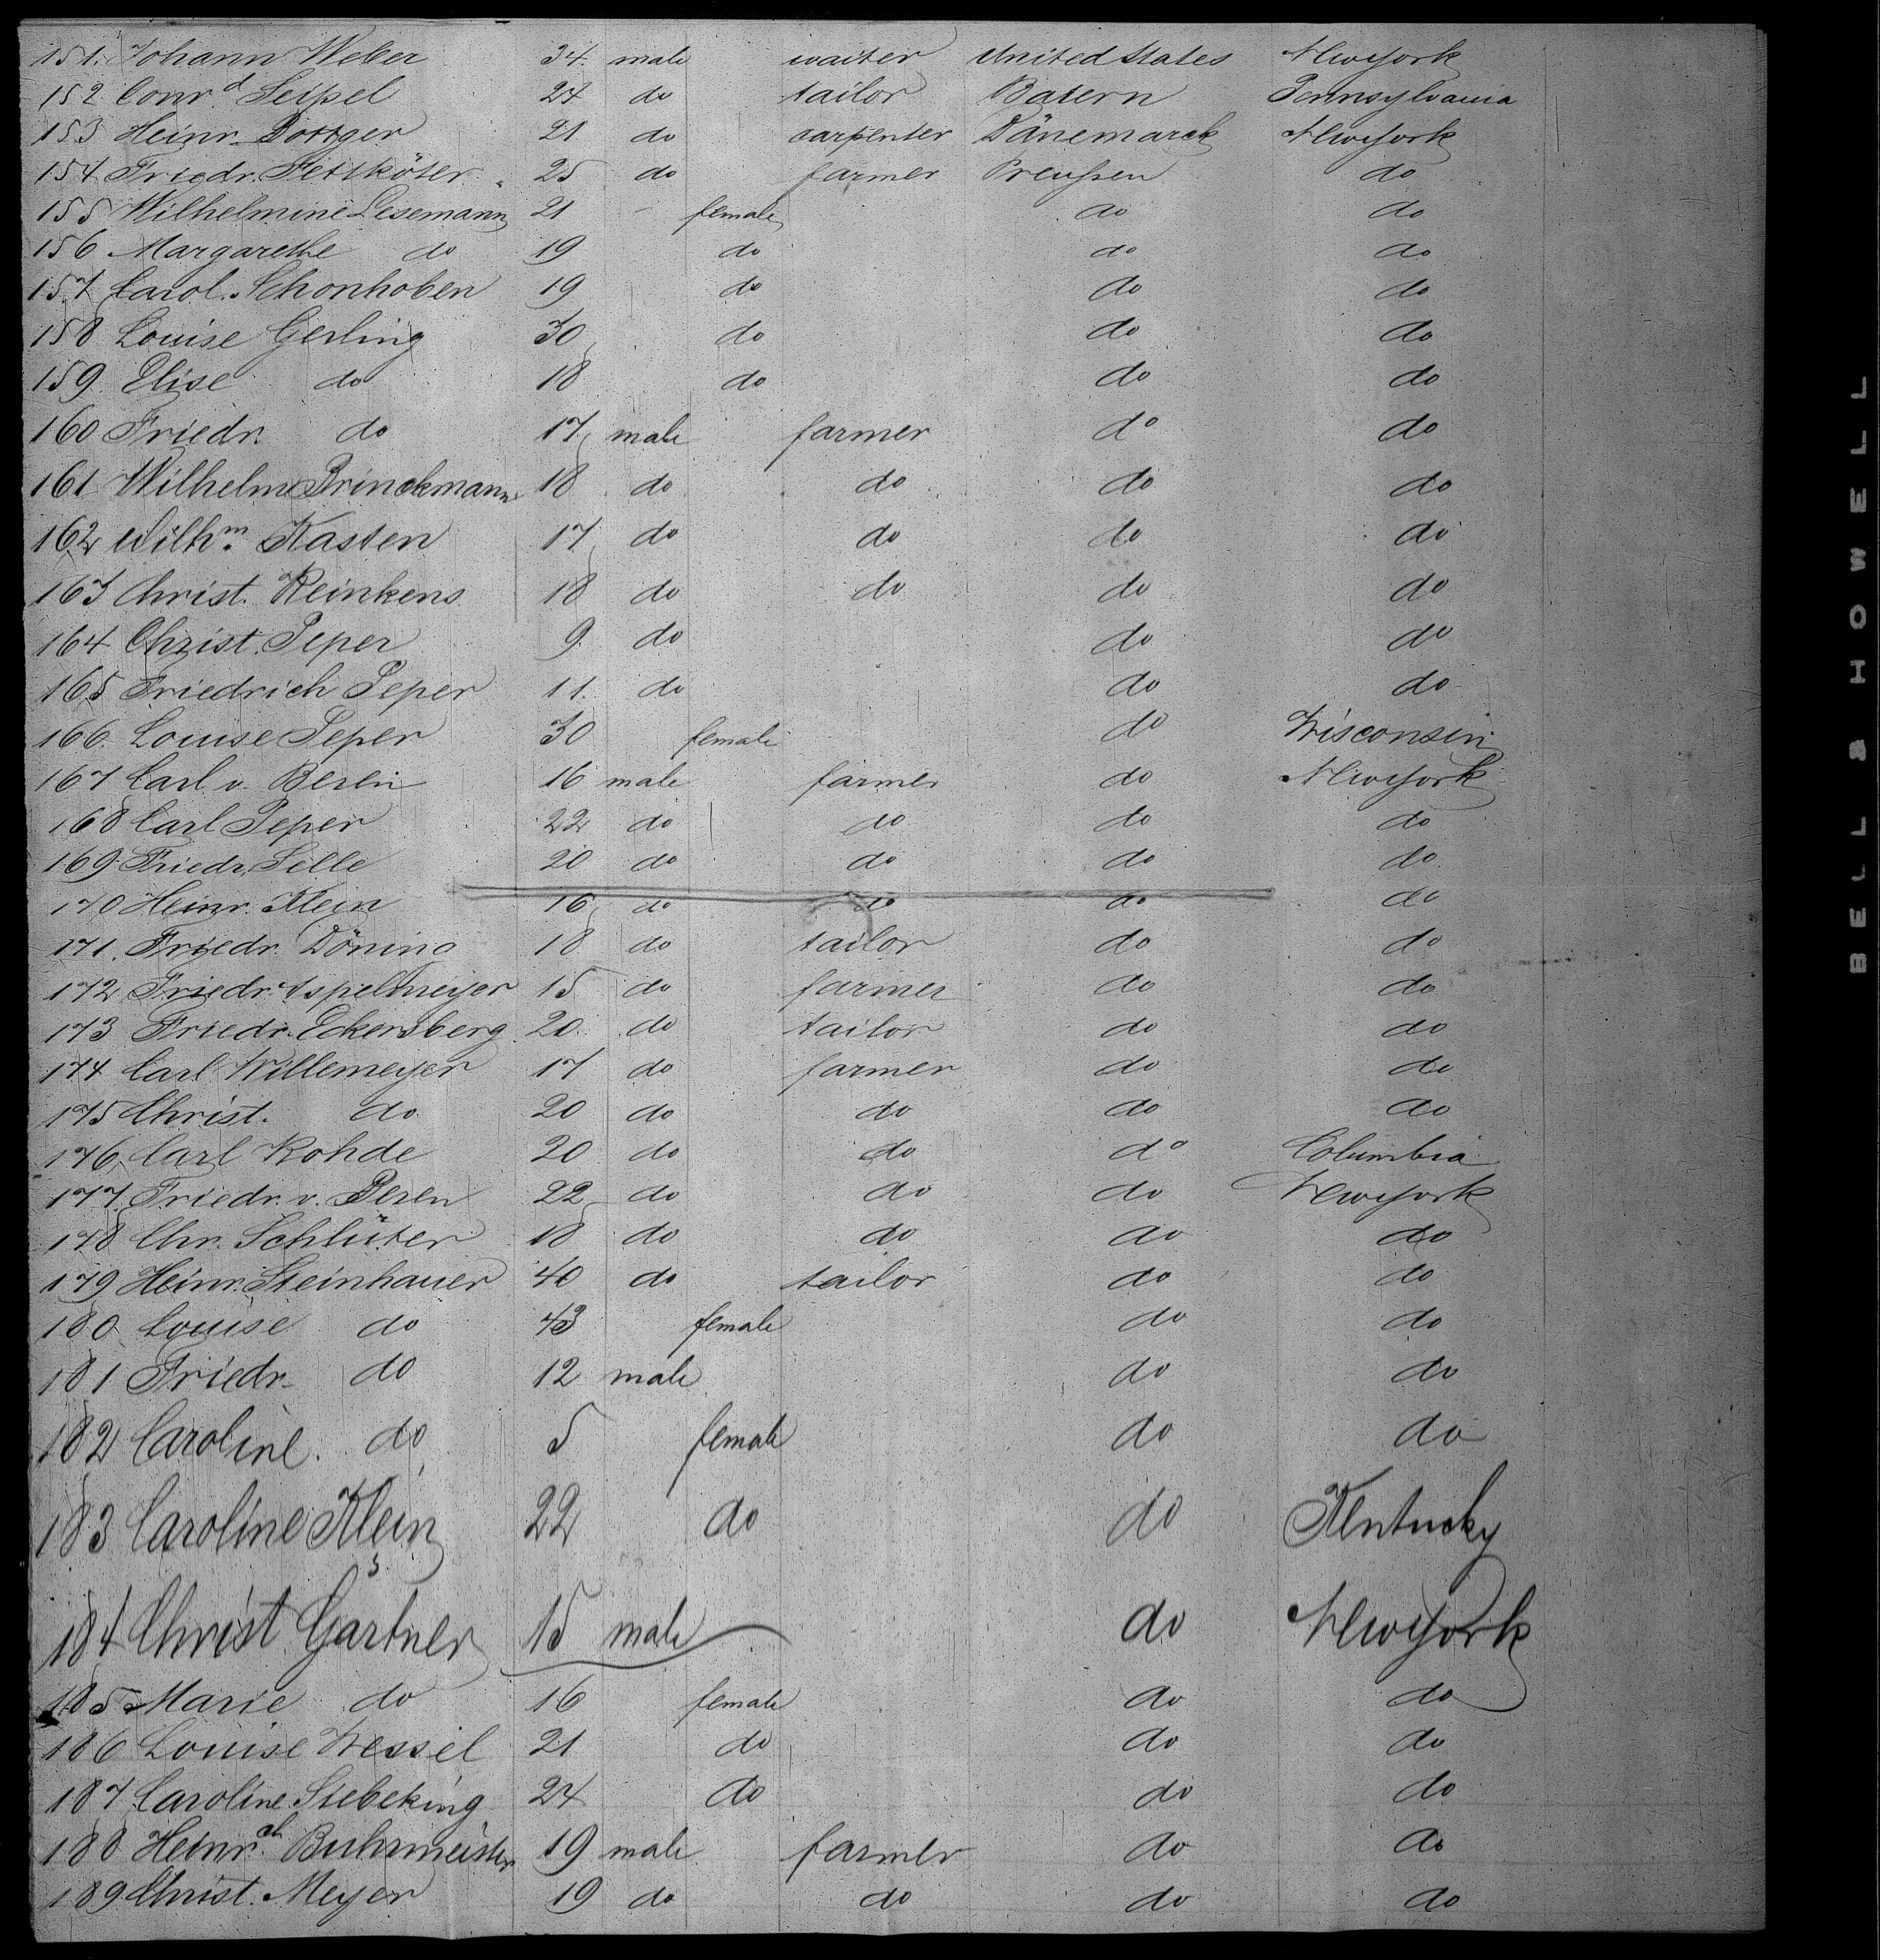 151. Johann Weber 34. male waiter United States Newyork
152 Conrd Seipel 24 do tailor Baiern Pennsylvania
153 Heinr. Böttger 21 do carpenter Dänemarck Newyork
154 Friedr. Fettköter 25 do farmer Preußen do
155 Wilhelmine Lesemann 21 female do do
156 Margarethe do 19 do do do
157 Carol. Schonhoben 19 do do do
158 Louise Gerling 30 do do do
159 Elise do 18 do do do
160 Friedr. do 17 male farmer do do
161 Wilhelm Brinckmann 18 do do do do
162 Wilhm. Kasten 17 do do do do
163 Christ. Reinkens 18 do do do do
164 Christ. Peper 9 do do do
165 Friedrich Peper 11. do do do
166. Louise Peper 30 female do Wisconsin
167 Carl v. Beren 16 male farmer do Newyork
168 Carl Peper 22 do do do do
169 Friedr. Selle 20 do do do do
170 Heinr. Klein 16 do do do do
171. Friedr. Döning 18 do tailor do do
172 Friedr. Espelmeyer 15 do farmer do do
173 Friedr. Eckersberg 20 do tailor do do
174 Carl Willemeyer 17 do farmer do do
175 Christ. do 20 do do do do
176 Carl Rohde 20 do do do Columbia
177. Friedr. v. Beren 22 do do do Newyork
178 Chr. Schlüter 18 do do do do
179 Heinr. Steinhauer 40 do tailor do do
180 Louise do 43 female do do
181 Friedr. do 12 male do do
182 Caroline. do 5 female do do
183 Caroline Klein 22 do do Kentucky
184 Christ Gärtner 15 male do Newyork
185 Marie do 16 female do do
186 Louise Wessel 21 do do do
187 Caroline Siebeking 24 do do do
188 Heinrch. Buhrmeister 19 male farmer do do
189 Christ. Meyer 19 do do do do
BELL & HOWELL